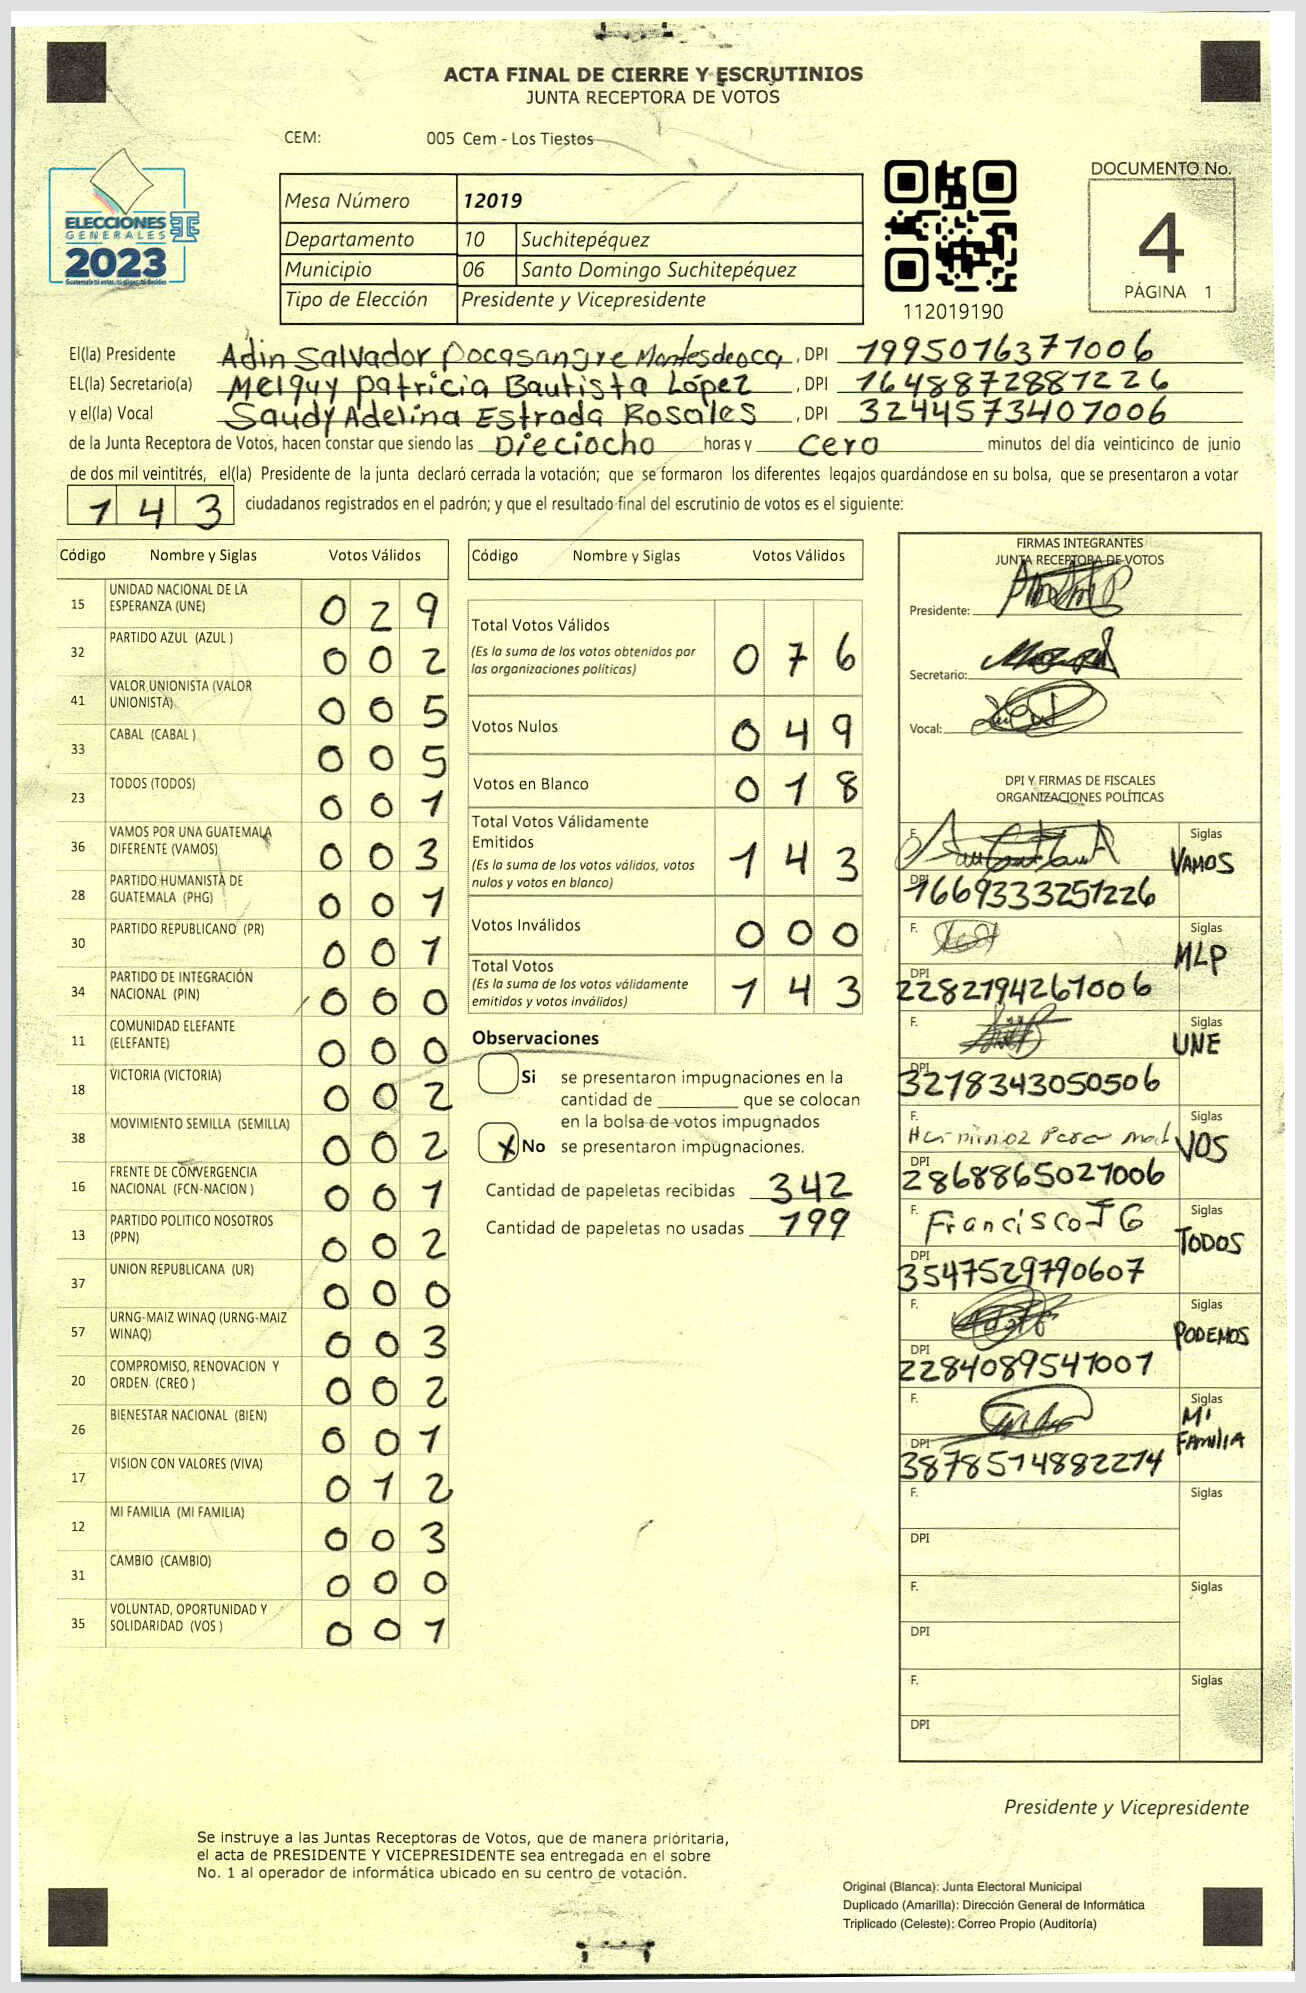 ACTA FINAL DE CIERRE Y ESCRUTINIOS
JUNTA RECEPTORA DE VOTOS
CEM: 005 Cem - Los Tiestos
ELECCIONES
GENERALES
2023
Guatemala tú estás, tú eliges, tú decides
Mesa Número 12019
Departamento 10 Suchitepéquez
Municipio 06 Santo Domingo Suchitepéquez
Tipo de Elección Presidente y Vicepresidente
112019190
DOCUMENTO No.
4
PÁGINA 1
El(la) Presidente Adin Salvador Pocasangre Montesdeoca, DPI 1995016371006
EL(la) Secretario(a) Melquy Patricia Bautista López, DPI 1648872881226
y el(la) Vocal Saudy Adelina Estrada Rosales, DPI 3244573407006
de la Junta Receptora de Votos, hacen constar que siendo las Dieciocho horas y Cero minutos del día veinticinco de junio
de dos mil veintitrés, el(la) Presidente de la junta declaró cerrada la votación; que se formaron los diferentes legajos guardándose en su bolsa, que se presentaron a votar
143 ciudadanos registrados en el padrón; y que el resultado final del escrutinio de votos es el siguiente:
Código Nombre y Siglas Votos Válidos
15 UNIDAD NACIONAL DE LA ESPERANZA (UNE) 029
32 PARTIDO AZUL (AZUL ) 002
41 VALOR UNIONISTA (VALOR UNIONISTA) 005
33 CABAL (CABAL ) 005
23 TODOS (TODOS) 001
36 VAMOS POR UNA GUATEMALA DIFERENTE (VAMOS) 003
28 PARTIDO HUMANISTA DE GUATEMALA (PHG) 001
30 PARTIDO REPUBLICANO (PR) 001
34 PARTIDO DE INTEGRACIÓN NACIONAL (PIN) 000
11 COMUNIDAD ELEFANTE (ELEFANTE) 000
18 VICTORIA (VICTORIA) 002
38 MOVIMIENTO SEMILLA (SEMILLA) 002
16 FRENTE DE CONVERGENCIA NACIONAL (FCN-NACION ) 001
13 PARTIDO POLITICO NOSOTROS (PPN) 002
37 UNION REPUBLICANA (UR) 000
57 URNG-MAIZ WINAQ (URNG-MAIZ WINAQ) 003
20 COMPROMISO, RENOVACION Y ORDEN (CREO ) 002
26 BIENESTAR NACIONAL (BIEN) 001
17 VISION CON VALORES (VIVA) 012
12 MI FAMILIA (MI FAMILIA) 003
31 CAMBIO (CAMBIO) 000
35 VOLUNTAD, OPORTUNIDAD Y SOLIDARIDAD (VOS ) 001
Código Nombre y Siglas Votos Válidos
Total Votos Válidos 076
(Es la suma de los votos obtenidos por
las organizaciones políticas)
Votos Nulos 049
Votos en Blanco 018
Total Votos Válidamente
Emitidos 143
(Es la suma de los votos válidos, votos
nulos y votos en blanco)
Votos Inválidos 000
Total Votos 143
(Es la suma de los votos válidamente
emitidos y votos inválidos)
Observaciones
Si se presentaron impugnaciones en la
cantidad de ________ que se colocan
en la bolsa de votos impugnados
X No se presentaron impugnaciones.
Cantidad de papeletas recibidas 342
Cantidad de papeletas no usadas 199
FIRMAS INTEGRANTES
JUNTA RECEPTORA DE VOTOS
Presidente:
Secretario:
Vocal:
DPI Y FIRMAS DE FISCALES
ORGANIZACIONES POLÍTICAS
F. Siglas VAMOS
DPI 1669333251226
F. Siglas MLP
DPI 2282194261006
F. Siglas UNE
DPI 3278343050506
F. Siglas VOS
DPI 2868865021006
F. Francisco J G Siglas TODOS
DPI 3547529790607
F. Siglas PODEMOS
DPI 2284089541001
F. Siglas Mi FAMILIA
DPI 3878514882214
F. Siglas
DPI
F. Siglas
DPI
F. Siglas
DPI
Presidente y Vicepresidente
Se instruye a las Juntas Receptoras de Votos, que de manera prioritaria,
el acta de PRESIDENTE Y VICEPRESIDENTE sea entregada en el sobre
No. 1 al operador de informática ubicado en su centro de votación.
Original (Blanca): Junta Electoral Municipal
Duplicado (Amarilla): Dirección General de Informática
Triplicado (Celeste): Correo Propio (Auditoría)